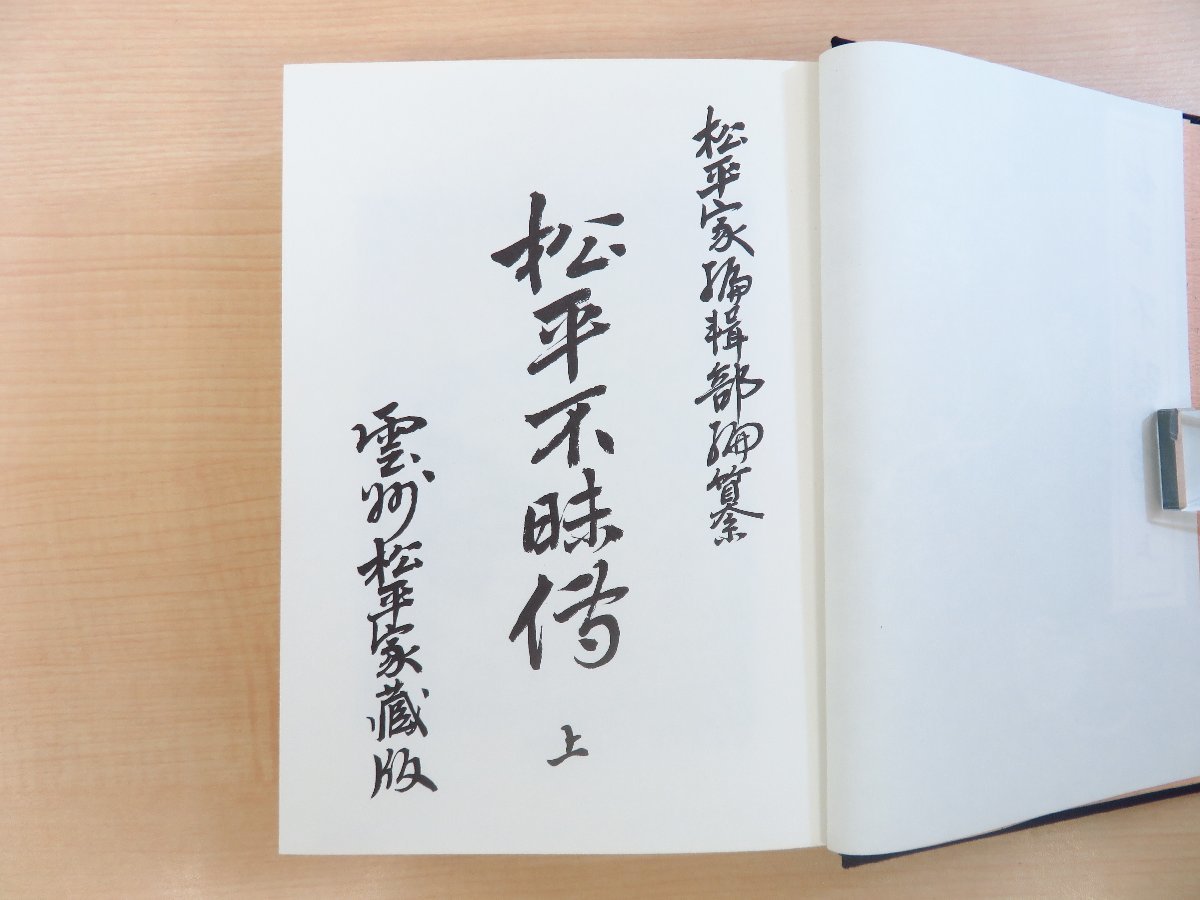 松平家編輯部編纂
松平不昧傳 上
雲州松平家藏版